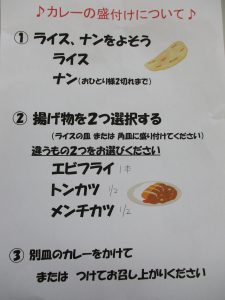 ♪カレーの盛付けについて♪
① ライス、ナンをよそう
ライス
ナン(おひとり様2切れまで)
② 揚げ物を２つ選択する
(ライスの皿 または 角皿に盛り付けてください)
違うもの２つをお選びください
エビフライ 1本
トンカツ 1/2
メンチカツ 1/2
③ 別皿のカレーをかけて
または つけてお召し上がりください